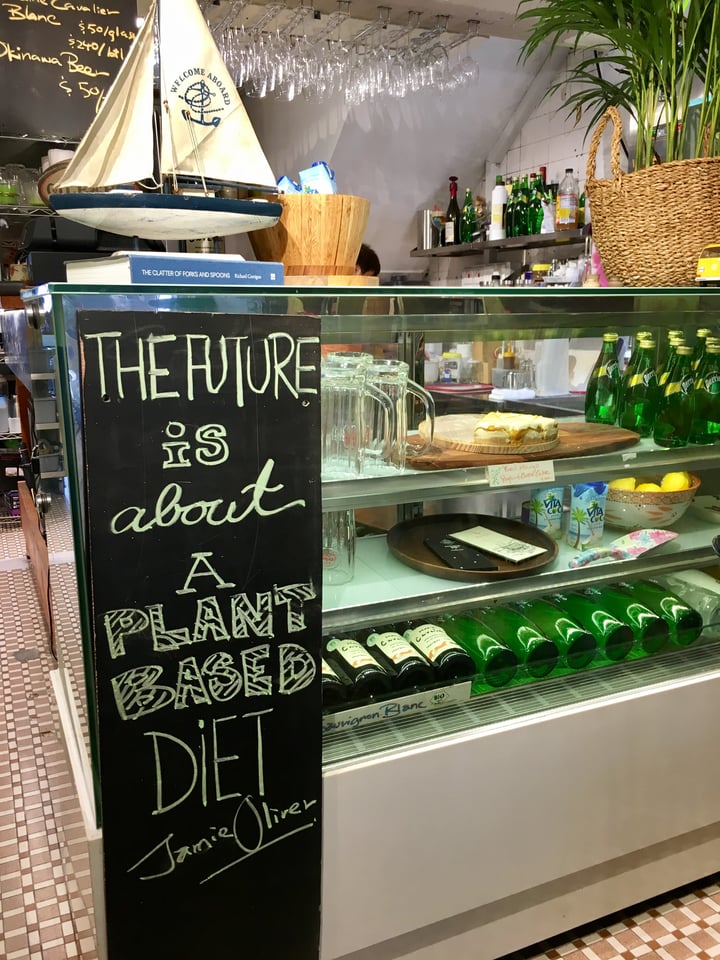 Cavalier
Blanc
$50/glass
$240/btl
Okinawa Beer
$50/
WELCOME ABOARD
THE CLATTER OF FORKS AND SPOONS Richard Corrigan
THE FUTURE
is
about
A
PLANT
BASED
DiET
Jamie Oliver
VITA
COCO
Sauvignon Blanc BIO